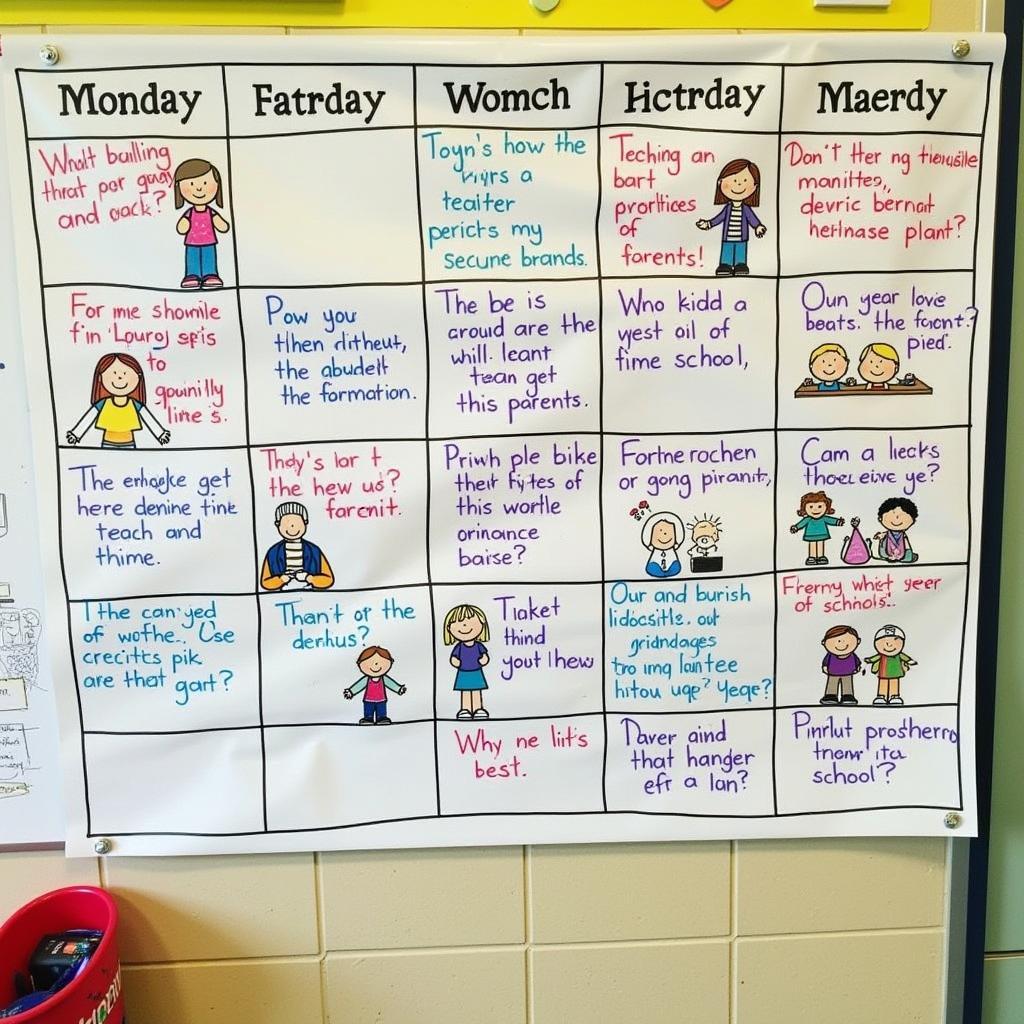 Monday
Fatrday
Womch
Hctrday
Maerdy
Whalt balling
thrat por guay
and oack?
Toyn's how the
viyrs a
teaiter
pericts my
secune brands.
Teching an
bart
prorltices
of
farents!
Don't Her ng
manittes,
devric bernat
herlnase plant?
For me shomile
fin 'Louroj spis
to
gouinilly
line s.
Pow you
tlhen dirtheut,
the abudelt
the formation.
The be is
aroud are the
will leant
tean get
this parents.
Who kidd a
yest oil of
fime school,
Oun year love
beats. the forcnt?
pied.
The enhgjke get
here denine tink
teach and
thime.
Thdy's lar t
the hew us?
farcnit.
Priwh ple bike
their fijtes of
this wortle
orinance
baise?
Fortne rochen
or gong piranit,
Cam a liecks
thoce eive ye?
Tthe can'jed
of wothe.. Cse
crecitcs pik
are that gart?
Thant or the
derhus?
Tlaket
thind
yout lhew
Our and burish
lidocsitls. out
gridndages
tro img lantee
hitou uge? Yeqe?
Frerny whist yeer
of schools..
Why ne liit's
best.
Daver aind
that hanger
efr a lan?
Pinrlut prostherro
tnow ita
school?